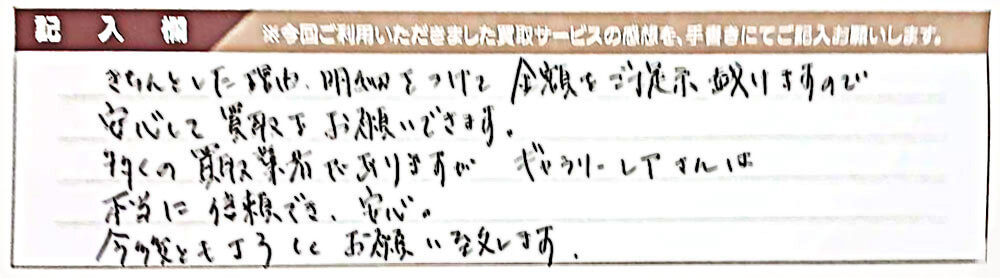 記入欄 ※今回ご利用いただきました買取サービスの感想を、手書きにてご記入お願いします。
きちんとした理由、明細をつけて 金額をご提示 致りますので
安心して買取をお願いできます。
多くの買取業者がありますが ギャラリーレアさんは
本当に信頼でき、安心。
今後ともよろしくお願い致します。